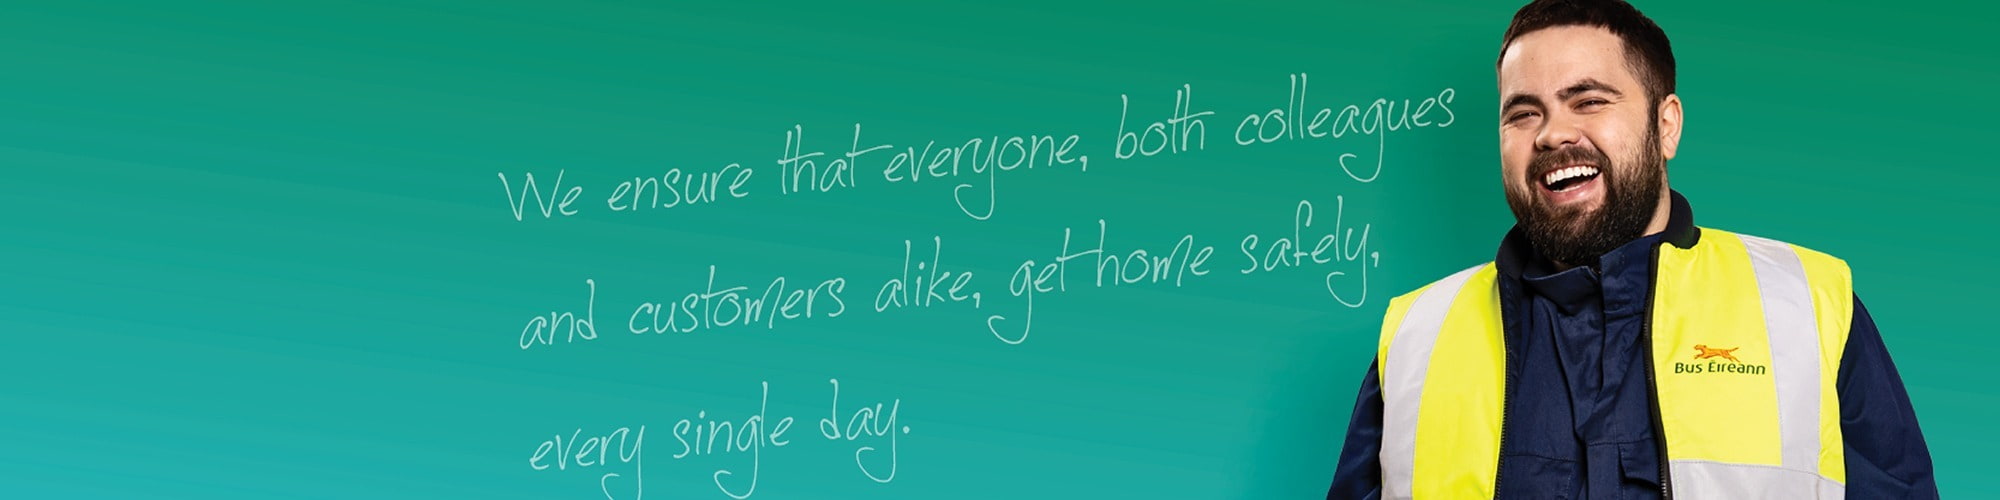 We ensure that everyone, both colleagues
and customers alike, get home safely,
every single day.
Bus Éireann